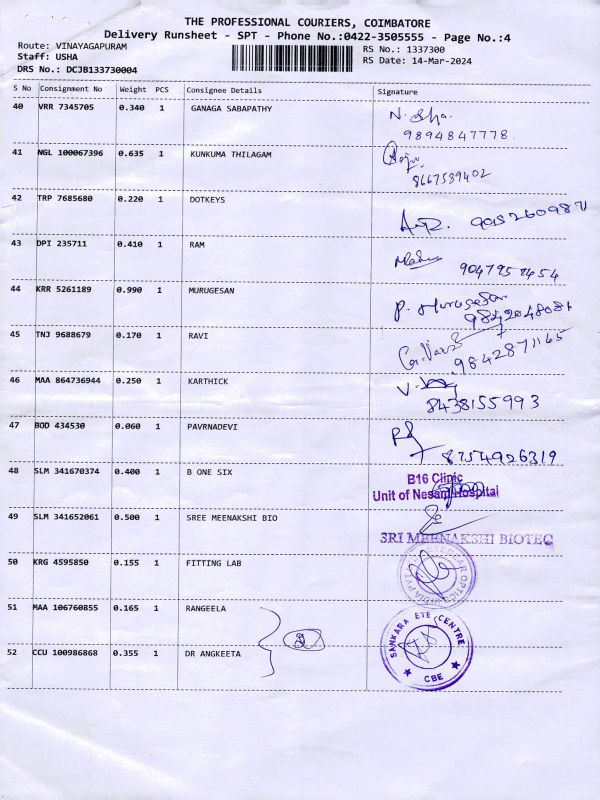 THE PROFESSIONAL COURIERS, COIMBATORE
Delivery Runsheet - SPT - Phone No.:0422-3505555 - Page No.:4
Route: VINAYAGAPURAM
Staff: USHA
DRS No.: DCJB133730004
RS No.: 1337300
RS Date: 14-Mar-2024
S No Consignment No Weight PCS Consignee Details Signature
40 VRR 7345705 0.340 1 GANAGA SABAPATHY N.
9894847778.
41 NGL 100067396 0.635 1 KUNKUMA THILAGAM
8667589402
42 TRP 7685680 0.220 1 DOTKEYS
43 DPI 235711 0.410 1 RAM
44 KRR 5261189 0.990 1 MURUGESAN P. Murugesan
9842048081
45 TNJ 9688679 0.170 1 RAVI
9842871165
46 MAA 864736944 0.250 1 KARTHICK V.
8438155993
47 BOD 434530 0.060 1 PAVRNADEVI 8754926319
48 SLM 341670374 0.400 1 B ONE SIX B16 Clinic
Unit of Nesam Hospital
49 SLM 341652061 0.500 1 SREE MEENAKSHI BIO
SRI MEENAKSHI BIOTEC
50 KRG 4595850 0.155 1 FITTING LAB
51 MAA 106760855 0.165 1 RANGEELA
52 CCU 100986868 0.355 1 DR ANGKEETA
SANKARA EYE CENTRE
CBE